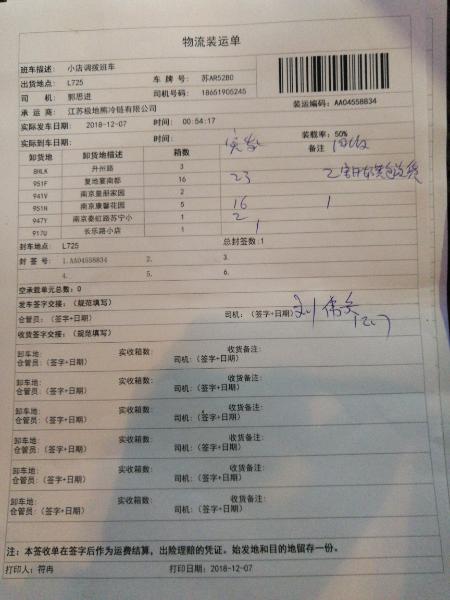 物流装运单
班车描述： 小店调拨班车
出货地点： L725 车 牌 号： 苏AR52B0
司 机： 郭思进 司机号码： 18651905245
承 运 商： 江苏极地熊冷链有限公司 装运编码：AA04558834
实际发车日期： 2018-12-07 时间： 00:54:17
实际到车日期： 时间： 装载率：50%
卸货地 卸货地描述 箱数 实发 备注 回收
8NLK 升州路 3
951F 复地宴南都 16 23
941V 南京皇册家园 2
951N 南京康馨花园 5 16 1
947Y 南京秦虹路苏宁小 1 2
917U 长乐路小店 1
封车地点： L725 总封签数：1
封 签 号： 1.AA04558834 2. 3.
4. 5. 6.
空承载单元总数：0
发车签字交接：（规范填写）
仓管员：（签字+日期） 司机：（签字+日期） 刘 12.7
收货签字交接：（规范填写）
卸车地： 实收箱数： 收货备注：
仓管员：（签字+日期） 司机：（签字+日期）
卸车地： 实收箱数： 收货备注：
仓管员：（签字+日期） 司机：（签字+日期）
卸车地： 实收箱数： 收货备注：
仓管员：（签字+日期） 司机：（签字+日期）
卸车地： 实收箱数： 收货备注：
仓管员：（签字+日期） 司机：（签字+日期）
卸车地： 实收箱数： 收货备注：
仓管员：（签字+日期） 司机：（签字+日期）
卸车地： 实收箱数： 收货备注：
仓管员：（签字+日期） 司机：（签字+日期）
注：本签收单在签字后作为运费结算，出险理赔的凭证。始发地和目的地留存一份。
打印人：符冉 打印日期：2018-12-07